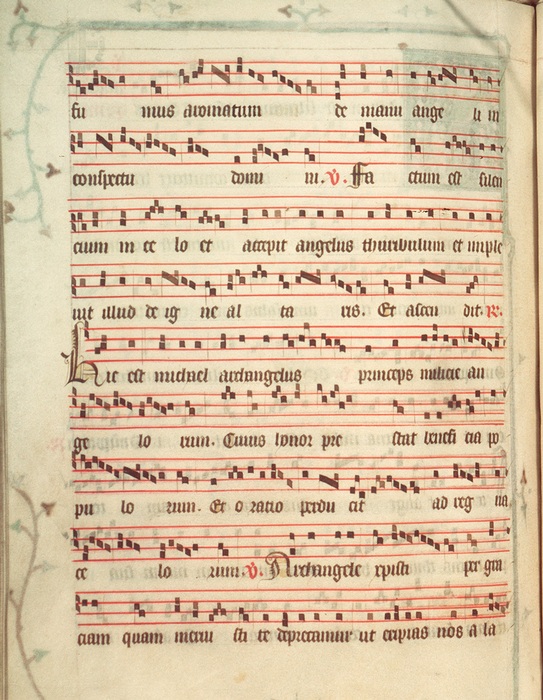 fu mus aromatum de manu ange li in
conspectu domi ni. V. Fa ctum est silen
cium in ce lo et accepit angelus thuribulum et imple
uit illud de ig ne al ta ris. Et ascen dit. R.
Hic est michael archangelus princeps milicie an
ge lo rum. Cuius honor pre stat benefi cia po
pu lo rum. Et o ratio perdu cit ad reg na
ce lo rum. V. Archangele xpisti per gra
ciam quam meru isti te deprecamur ut eripias nos a la